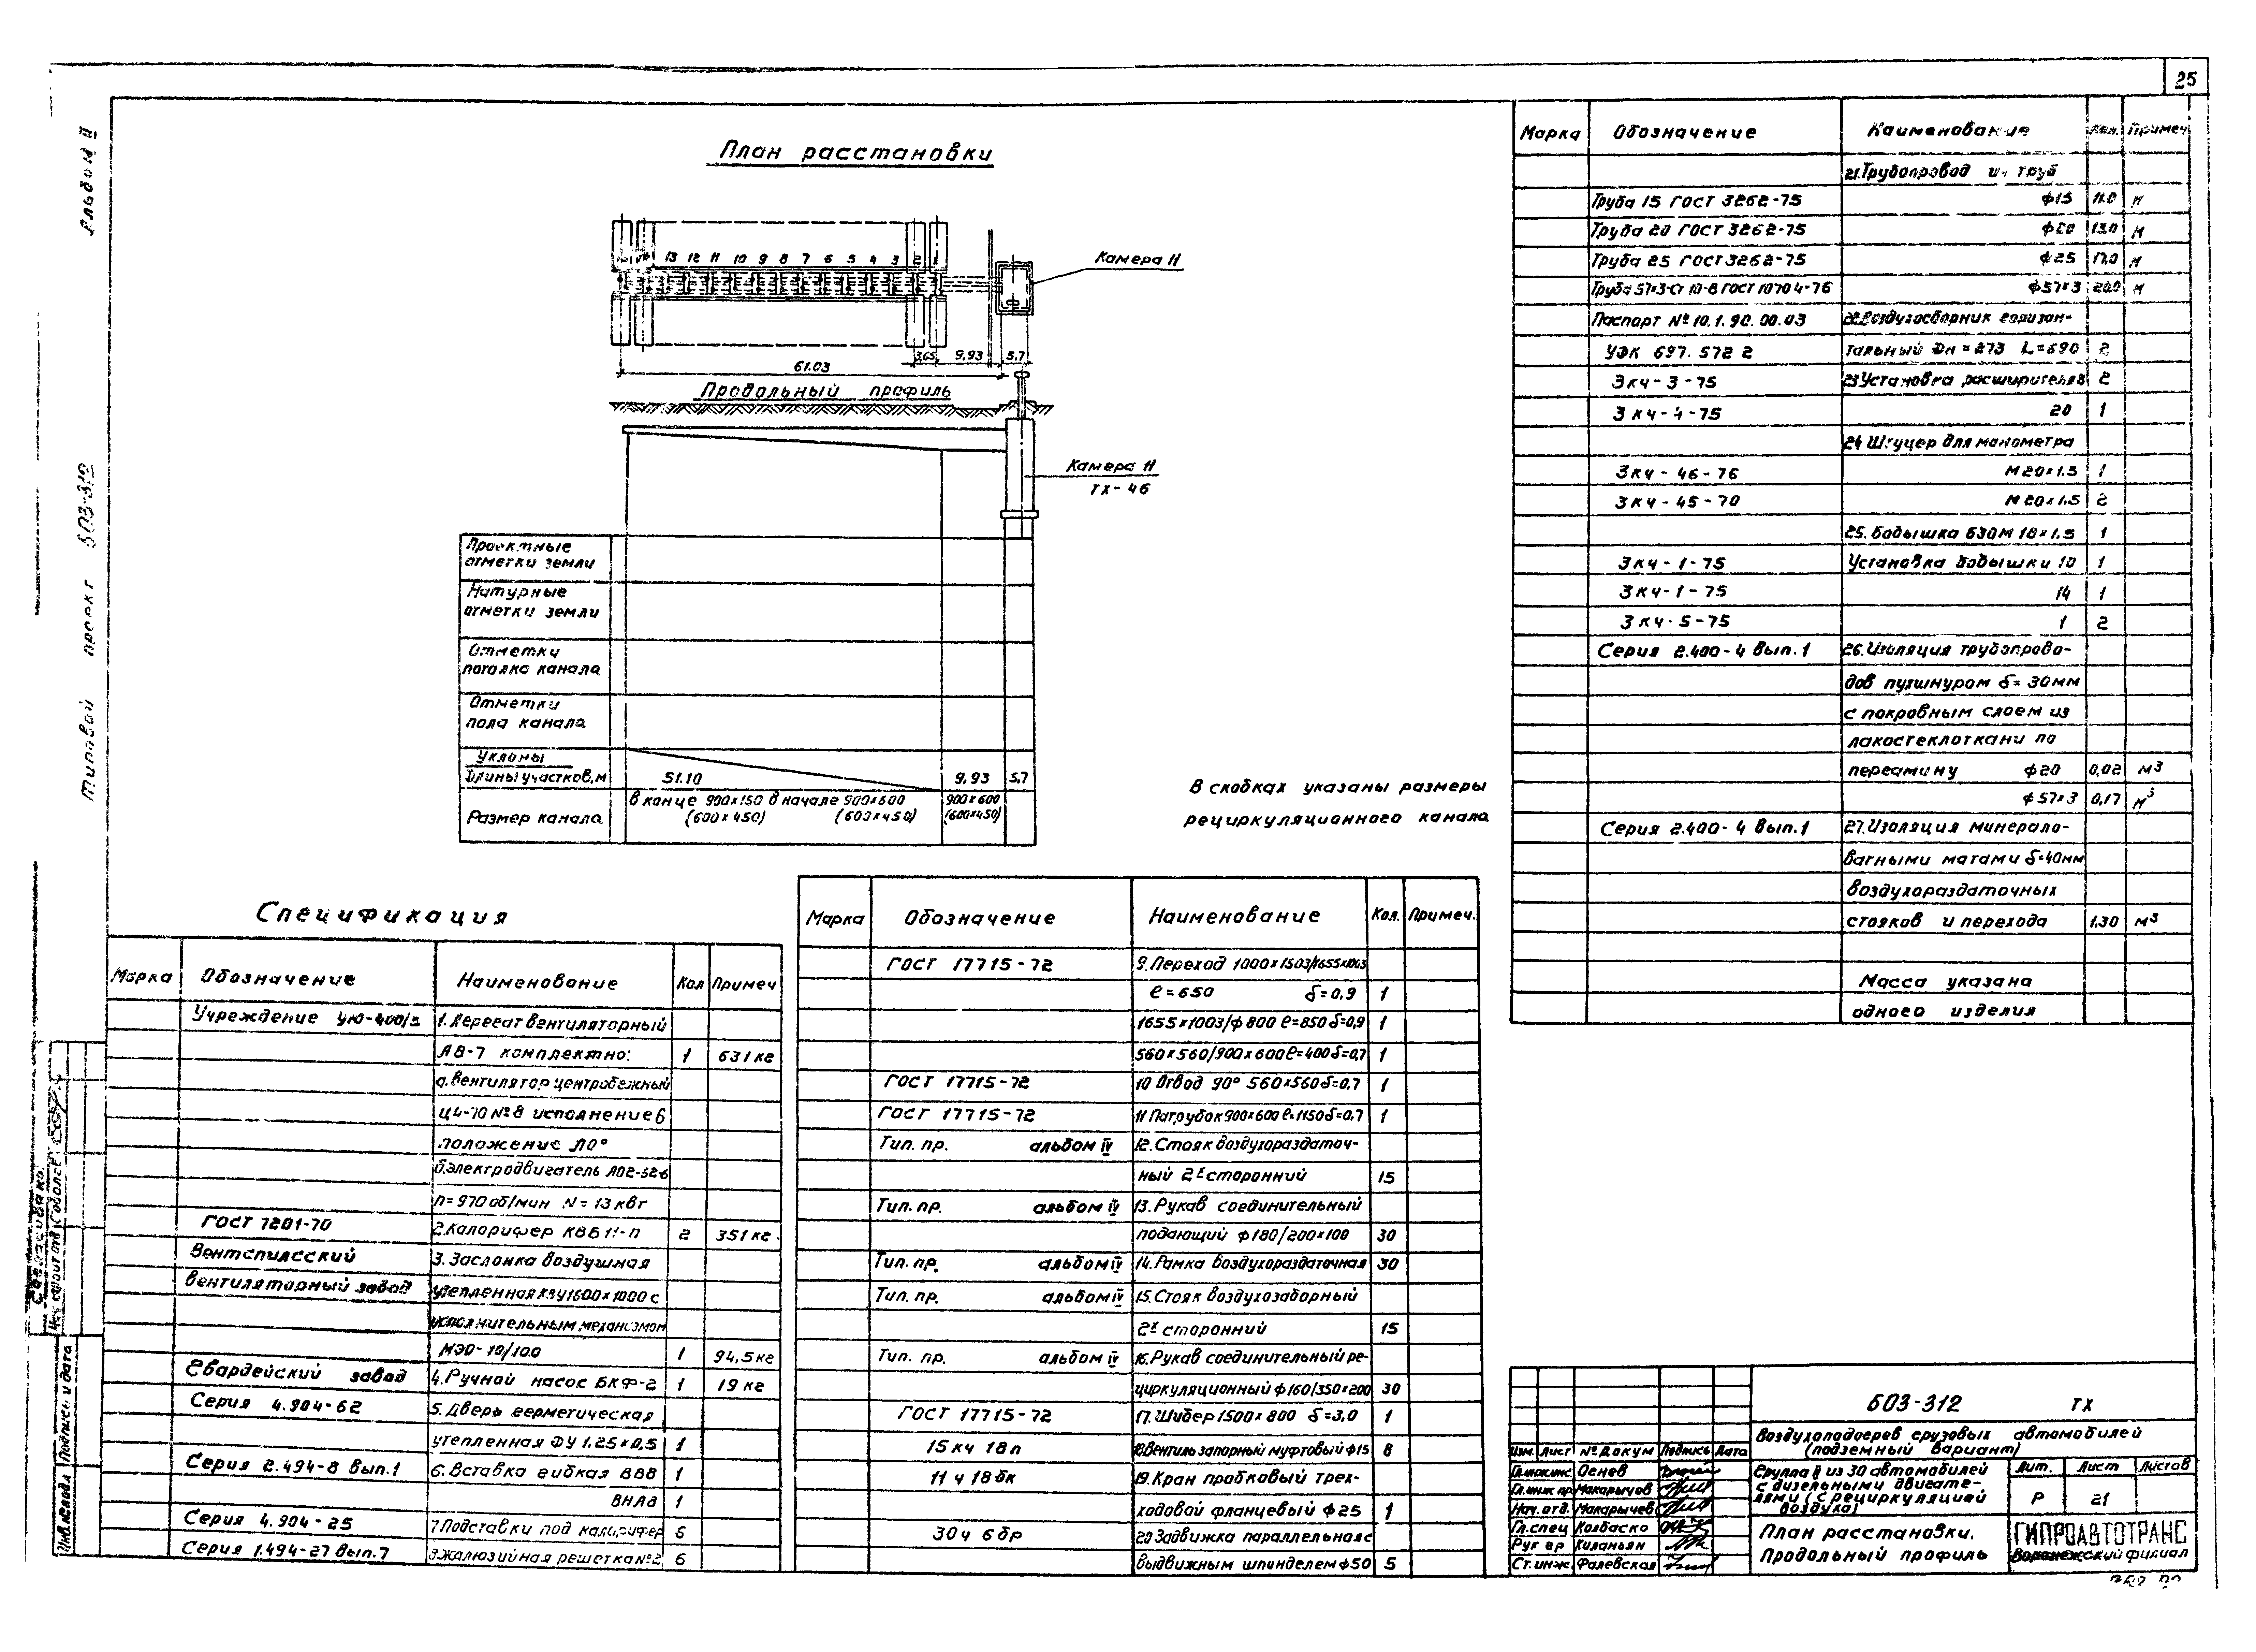 25
Альбом II
Типовой проект 503-312
План расстановки
13 12 11 10 9 8 7 6 5 4 3 2 1
Камера 11
3,65 9,93 5,7
61.03
Продольный профиль
Камера 11
ТХ-46
Проектные
отметки земли
Натурные
отметки земли
Отметки
потолка канала
Отметки
пола канала
Уклоны
Длины участков, м 51.10 9,93 5,7
Размер канала
в конце 900х150 в начале 900х600 900х600
(600х450) (600х450) (600х450)
В скобках указаны размеры
рециркуляционного канала
Спецификация
Марка Обозначение Наименование Кол Примеч
Учреждение 1. Агрегат вентиляторный
А8-7 комплектно: 1 631 кг
а. Вентилятор центробежный
Ц4-70 №8 исполнение 6
положение Л0°
б. Электродвигатель АО2-52-6
n=970 об/мин N=13 квт
ГОСТ 7201-70 2. Калорифер 2 351 кг
Вентспилсский 3. Заслонка воздушная
вентиляторный завод утепленная КВУ1600х1000 с
исполнительным механизмом
МЭО-10/100 1 94,5 кг
завод 4. Ручной насос БКФ-2 1 19 кг
Серия 4.904-62 5. Дверь герметическая
утепленная ДУ 1.25х0,5 1
Серия 2.494-8 вып.1 6. Вставка гибкая ВВ8 1
ВНА8 1
Серия 4.904-25 7. Подставки под калорифер 6
Серия 1.494-27 вып.7 8. Жалюзийная решетка №2 6
Марка Обозначение Наименование Кол. Примеч.
ГОСТ 17715-72 9. Переход 1000х1503/1655х1003
ℓ=650 δ=0,9 1
1655х1003/ф800 ℓ=850 δ=0,9 1
560х560/900х600 ℓ=400 δ=0,7 1
ГОСТ 17715-72 10 Отвод 90° 560х560 δ=0,7 1
ГОСТ 17715-72 11 Патрубок 900х600 ℓ=1150 δ=0,7 1
Тип. пр. альбом IV 12. Стояк воздухораздаточ-
ный 2х сторонний 15
Тип. пр. альбом IV 13. Рукав соединительный
подающий ф180/200х100 30
Тип. пр. альбом IV 14. Рамка воздухораздаточная 30
Тип. пр. альбом IV 15. Стояк воздухозаборный
2х сторонний 15
Тип. пр. альбом IV 16. Рукав соединительный ре-
циркуляционный ф160/350х200 30
ГОСТ 17715-72 17. Шибер 1500х800 δ=3,0 1
15 кч 18п 18. Вентиль запорный муфтовый ф15 8
11 ч 18 бк 19. Кран пробковый трех-
ходовой фланцевый ф25 1
30ч 6 бр 20 Задвижка параллельная с
выдвижным шпинделем ф50 5
Марка Обозначение Наименование Кол. Примеч
21. Трубопровод из труб
Труба 15 ГОСТ 3262-75 ф15 11.0 м
Труба 20 ГОСТ 3262-75 ф20 13,0 м
Труба 25 ГОСТ 3262-75 ф25 17,0 м
Труба 57х3-Ст 10-В ГОСТ 10704-76 ф57х3 20,0 м
Паспорт № 10.1.90.00.03 22. Воздухосборник горизон-
УДК 697.572 2 тальный Дн=273 L=690 2
3кч-3-75 23 Установка расширителя 2
3кч-4-75 20 1
24 Штуцер для манометра
3кч-46-76 М20х1.5 1
3кч-45-70 М20х1.5 2
25. Бобышка БЗОМ 18х1.5 1
3кч-1-75 Установка бобышки 10 1
3кч-1-75 14 1
3кч-5-75 1 2
Серия 2.400-4 вып.1 26. Изоляция трубопрово-
дов пухшнуром δ=30мм
с покровным слоем из
лакостеклоткани по
пергамину ф20 0,02 м3
ф57х3 0,17 м3
Серия 2.400-4 вып.1 27. Изоляция минерало-
ватными матами δ=40мм
воздухораздаточных
стояков и перехода 1.30 м3
Масса указана
одного изделия
Согласовано
Подпись и дата
503-312 ТХ
Воздухоподогрев грузовых автомобилей
(подземный вариант)
Изм. Лист № докум Подпись Дата
Гл.инж.инс. Оенев
Гл.инж.пр. Макарычев
Нач. отд. Макарычев
Гл.спец Колбаско
Рук гр Киланьян
Ст. инж Фалевская
Группа II из 30 автомобилей
с дизельными двигате-
лями (с рециркуляцией
воздуха)
Лит. Лист Листов
Р 21
План расстановки.
Продольный профиль
ГИПРОАВТОТРАНС
Воронежский филиал